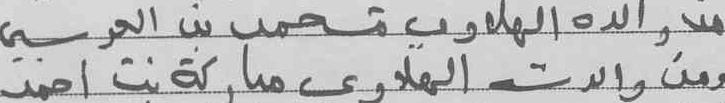 والده الهلاوي محمد بن العربي
ومن والدته الهلاوي مباركة بنت احمد